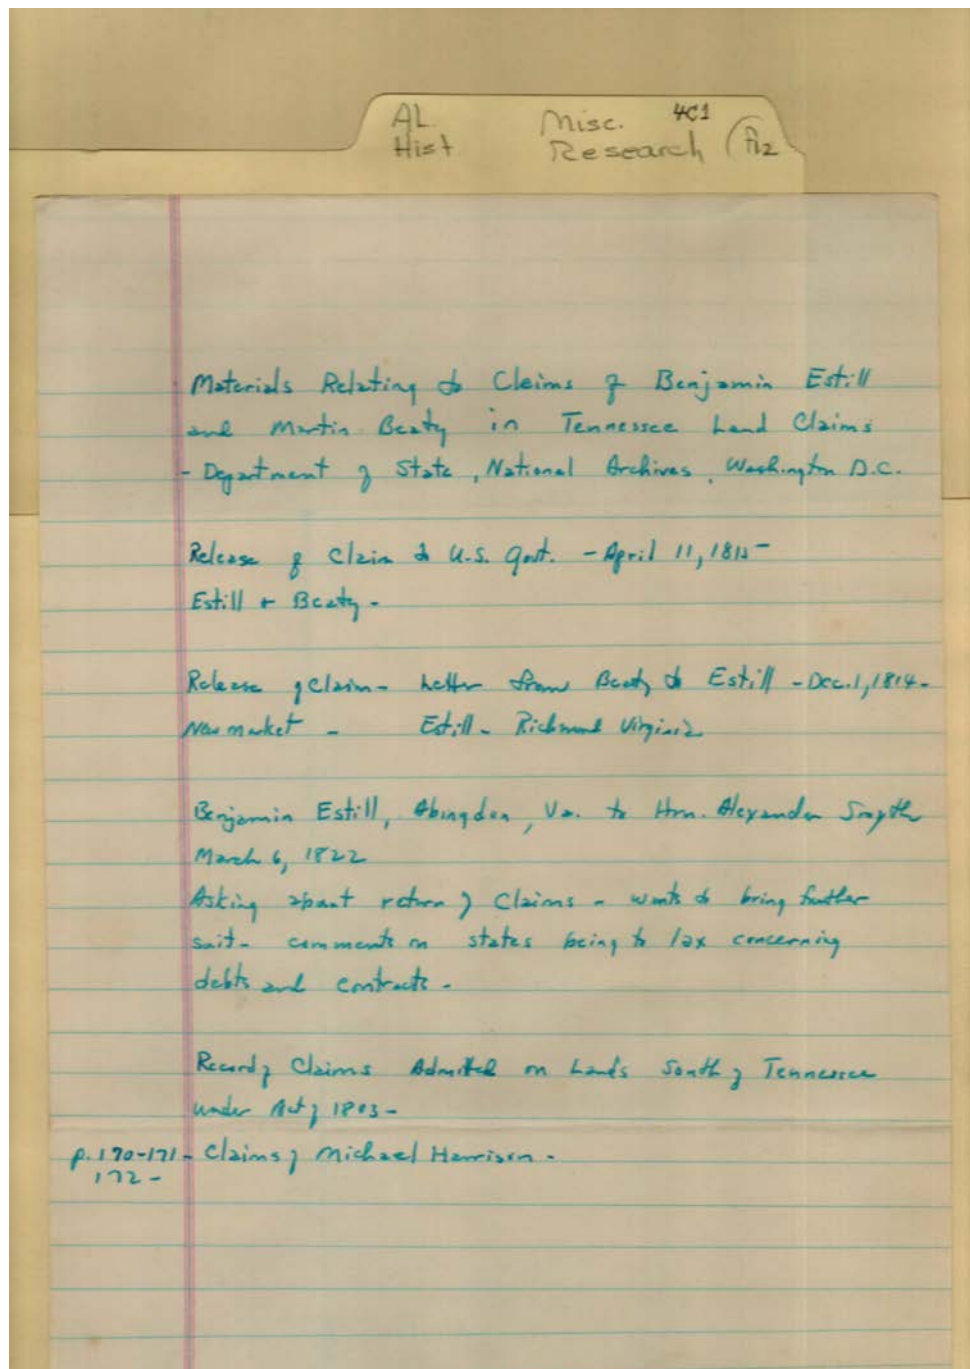 AL Misc. 4C1
Hist Research
Materials Relating to Claims of Benjamin Estill
and Martin Beaty in Tennessee Land Claims
- Department of State, National Archives, Washington D.C.
Release of Claim to U.S. Govt. - April 11, 1815 -
Estill + Beaty -
Release of Claim - Letter from Beaty to Estill - Dec. 1, 1814 -
New market - Estill - Richmond Virginia
Benjamin Estill, Abingdon, Va. to Hon. Alexander Smyth
March 6, 1822
Asking about return of Claims - wants to bring further
suit - comments on states being to lax concerning
debts and contracts -
Record of Claims Admitted on Lands South of Tennessee
under Act of 1803 -
p. 170-171 - Claims of Michael Harrison -
172 -